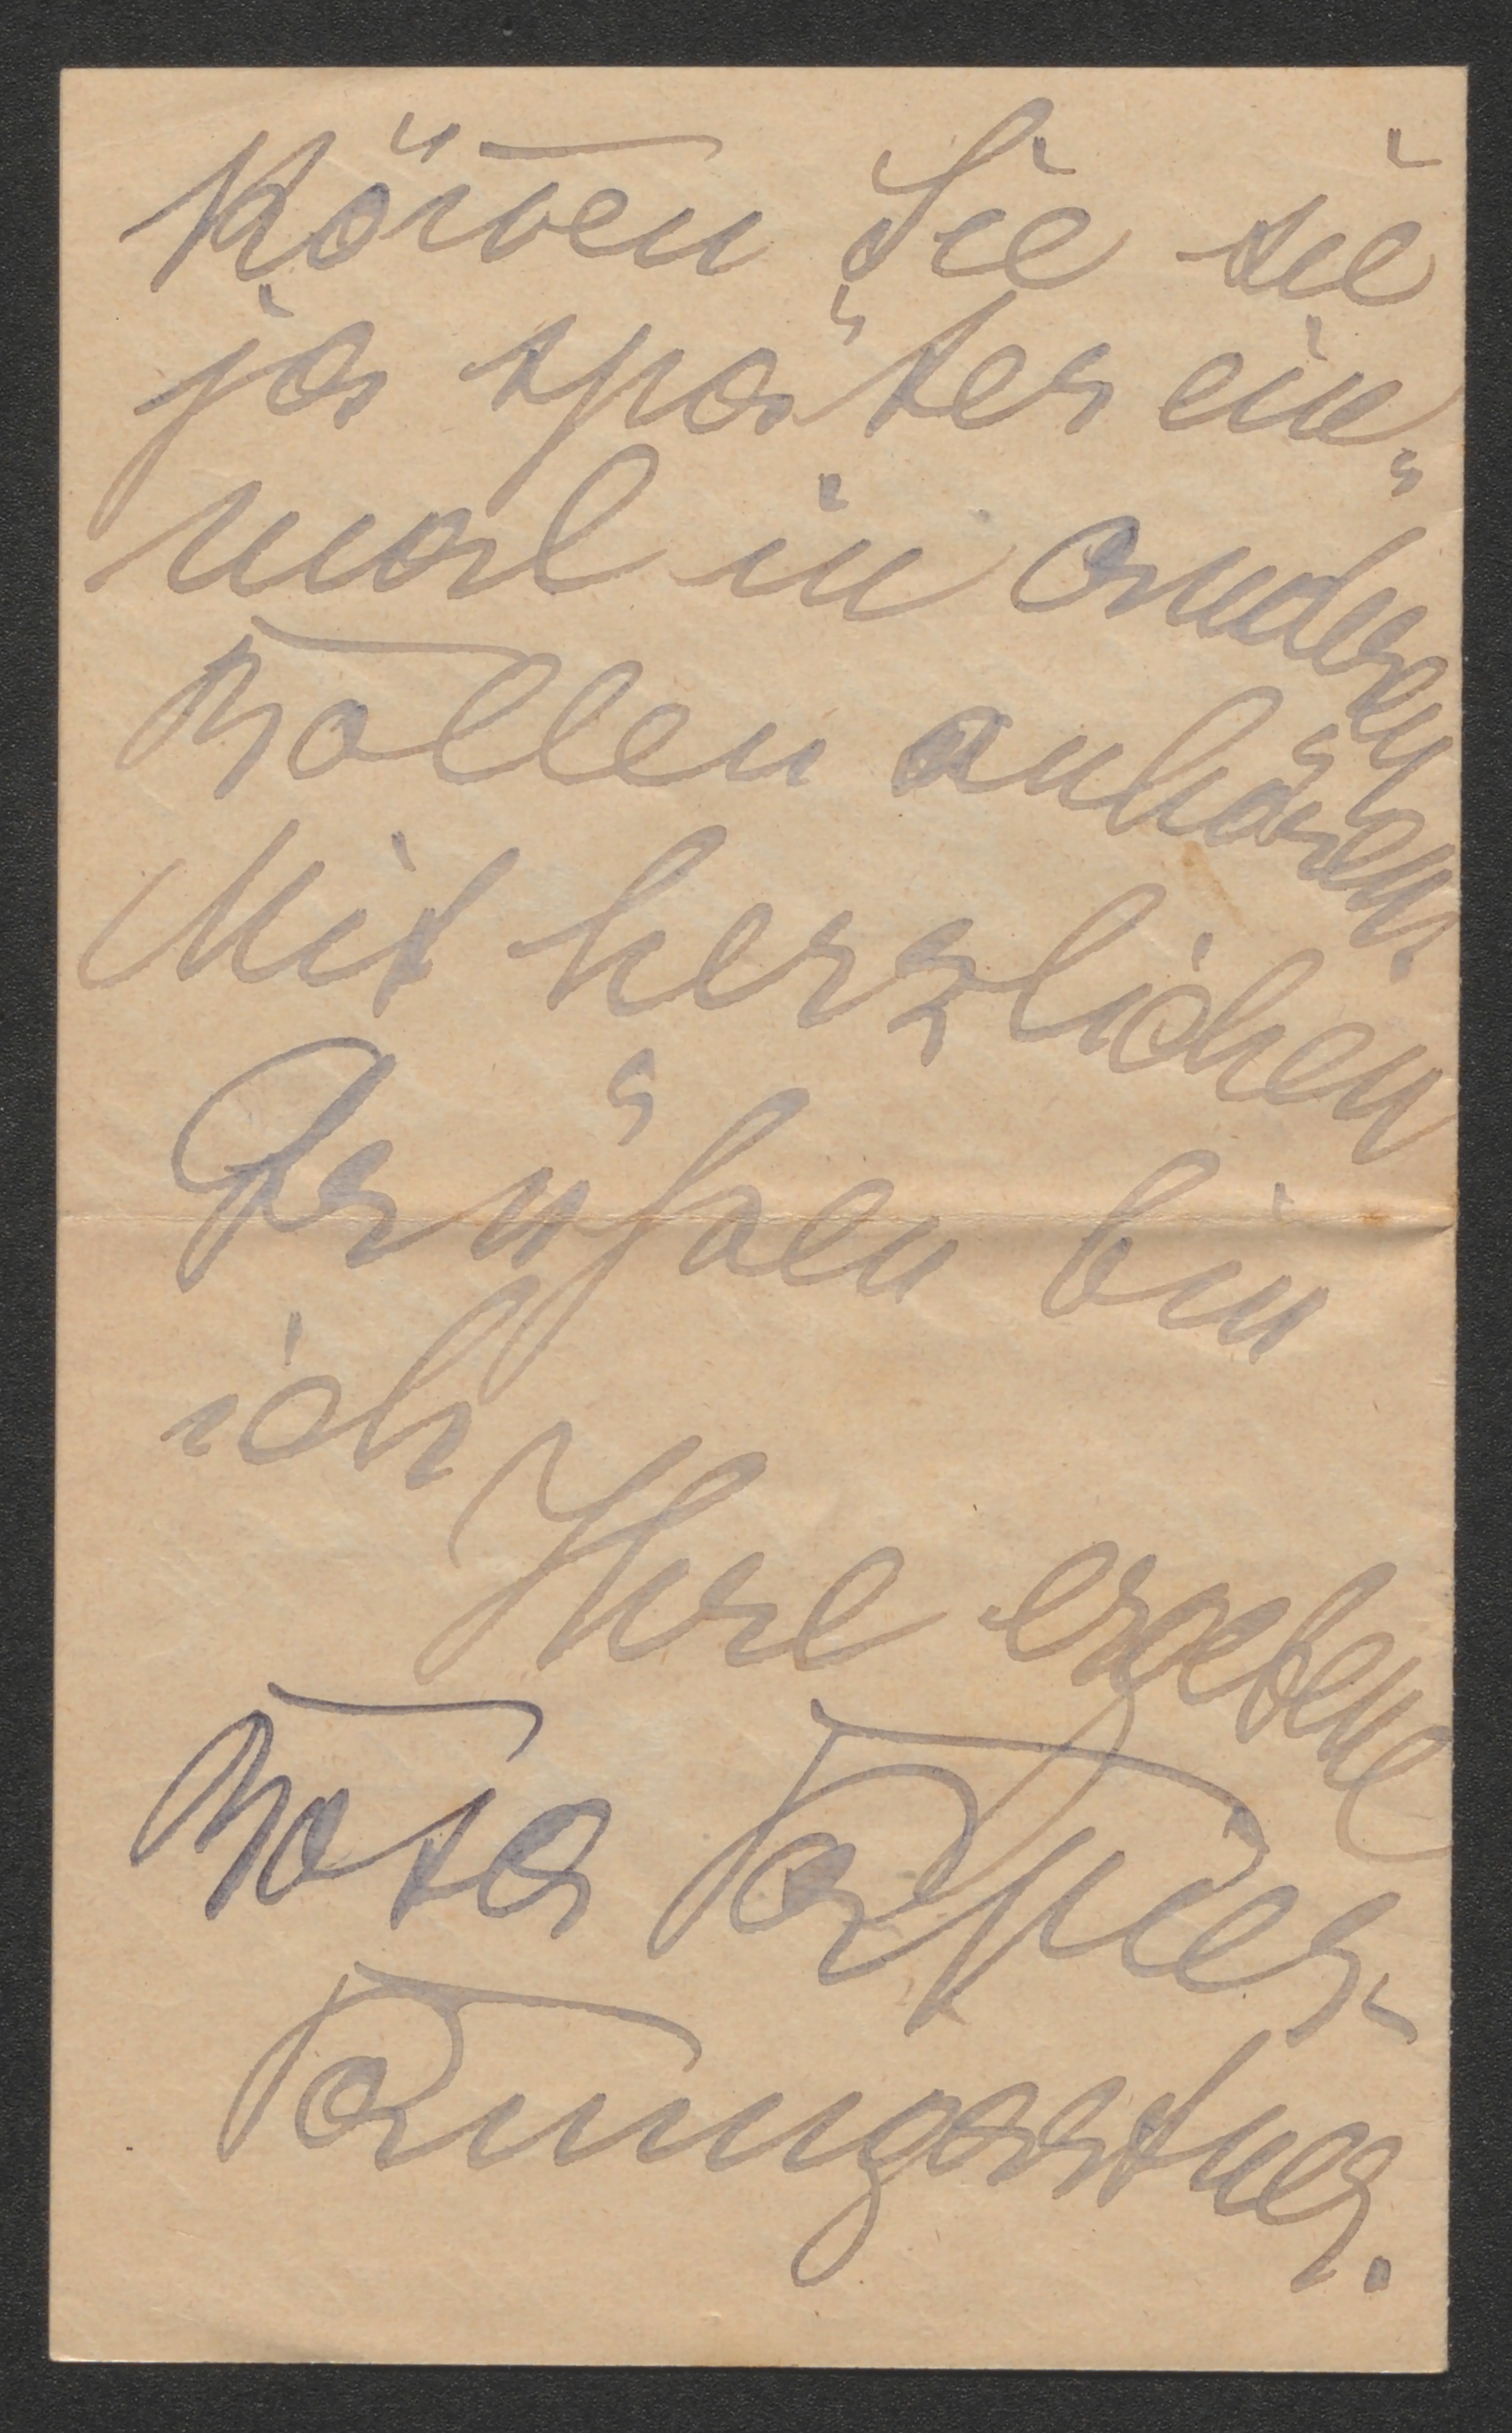 Kön̄en Sie sie
ja später ein-
mal in anderen
Rollen anhören.
Mit herzlichen
Grüßen bin
ich
Ihre ergebene
Rosa Papier-
Paumgartner.